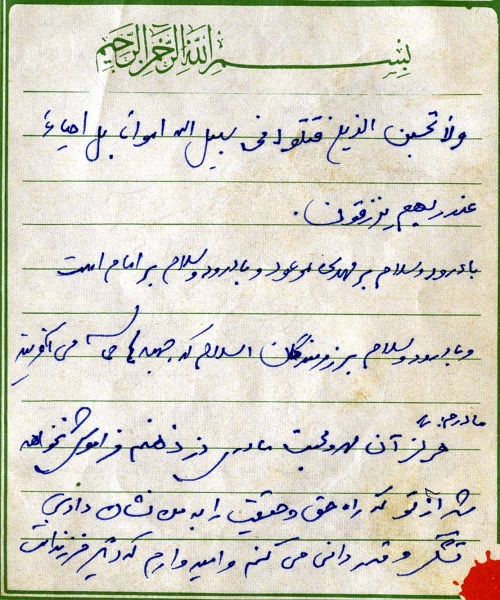 بسم الله الرحمن الرحیم
ولا تحسبن الذین قتلوا فی سبیل الله امواتا بل احیاء
عند ربهم یرزقون.
با درود و سلام بر مهدی موعود و با درود و سلام بر امام امت
و با درود و سلام بر رزمندگان اسلام که جبهه‌ها حماسه می‌آفرینند
مادرم:
هرگز آن مهر و محبت مادری در ذهنم فراموش نخواهد
شد از تو که راه حق و حقیقت را به من نشان دادی
تشکر و قدردانی می کنم و امیدوارم که دیگر فرزندانت